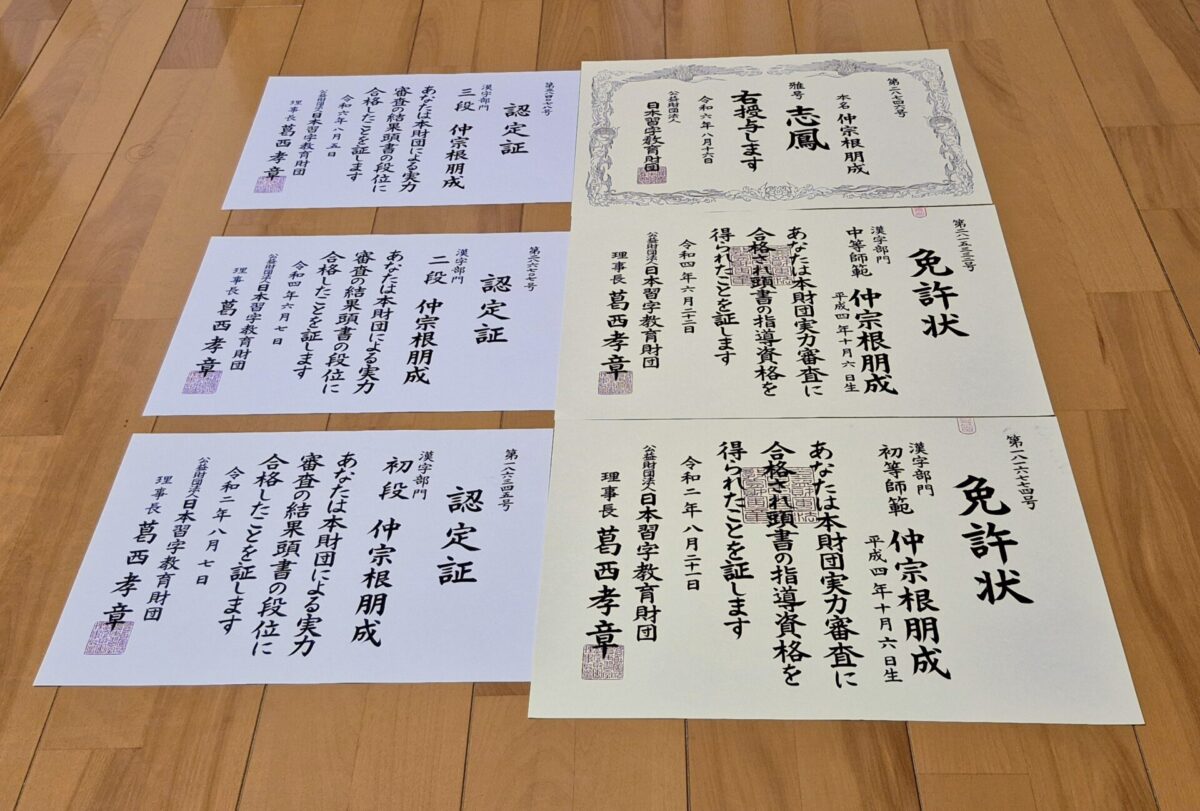 第二八七四六号
本名 仲宗根朋成
雅号 志鳳
右授与します
令和六年八月十六日
公益財団法人
日本習字教育財団
認定証
漢字部門
三段 仲宗根朋成
あなたは本財団による実力
審査の結果頭書の段位に
合格したことを証します
令和六年八月五日
公益財団法人日本習字教育財団
理事長 葛西孝章
免許状
漢字部門
中等師範 仲宗根朋成
平成四年十月六日生
あなたは本財団実力審査に
合格され頭書の指導資格を
得られたことを証します
令和四年六月二十二日
公益財団法人日本習字教育財団
理事長 葛西孝章
認定証
漢字部門
二段 仲宗根朋成
あなたは本財団による実力
審査の結果頭書の段位に
合格したことを証します
令和四年六月七日
公益財団法人日本習字教育財団
理事長 葛西孝章
第一八一六七七四号
免許状
漢字部門
初等師範 仲宗根朋成
平成四年十月六日生
あなたは本財団実力審査に
合格され頭書の指導資格を
得られたことを証します
令和二年八月二十一日
公益財団法人日本習字教育財団
理事長 葛西孝章
第一八六三四五号
認定証
漢字部門
初段 仲宗根朋成
あなたは本財団による実力
審査の結果頭書の段位に
合格したことを証します
令和二年八月七日
公益財団法人日本習字教育財団
理事長 葛西孝章